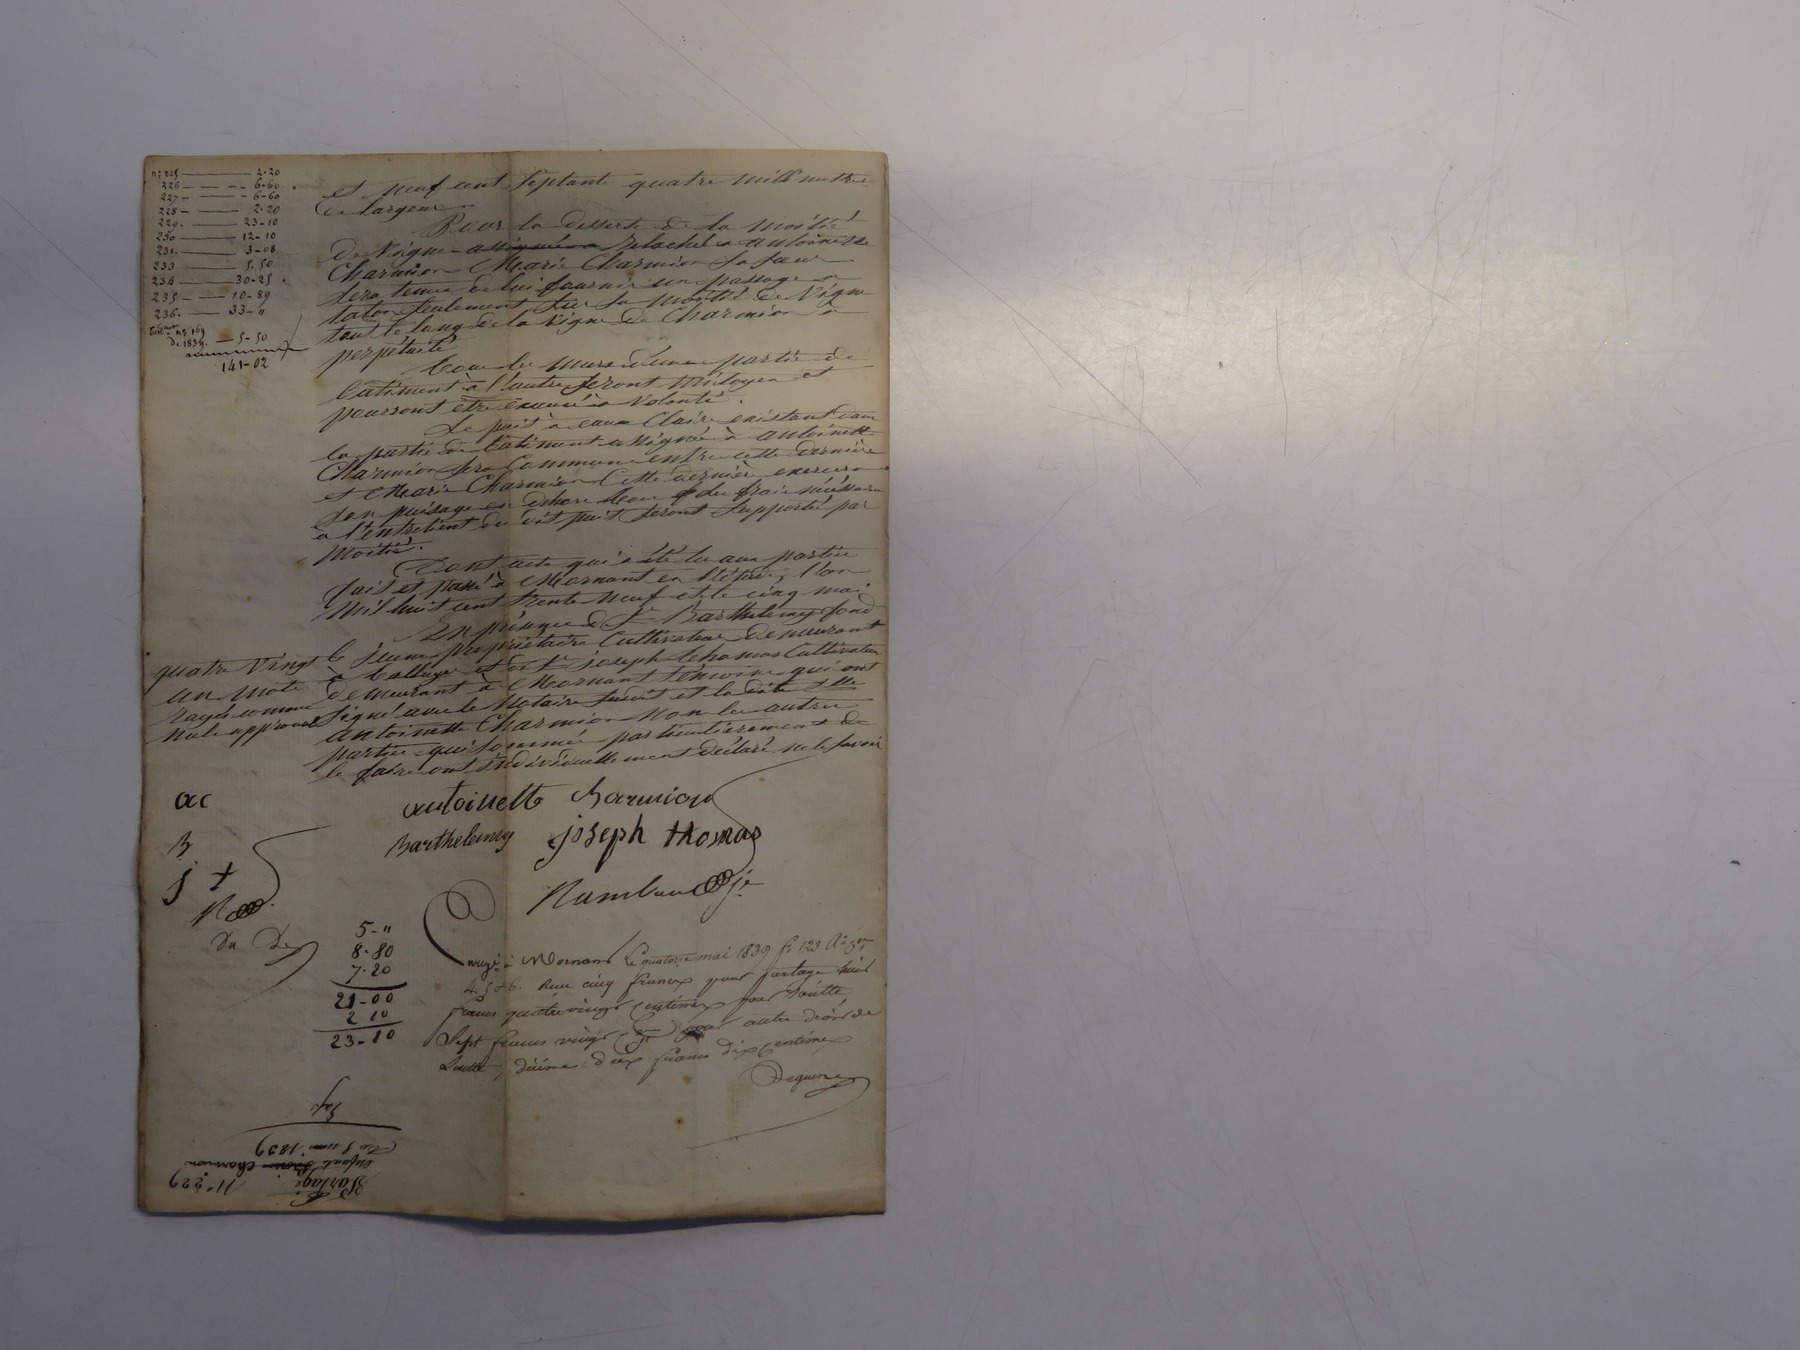 nos 225 — 2-20
226 — 6-60
227 — 6-60
228 — 2-20
229. — 23-10
230 — 12-10
231. — 3-08
233 — 5-50
234 — 30-25
235 — 10-89
236. — 33-"
no 169
de 1839. — 5-50
141-02
et neuf cent septante quatre millimetres
de largeur
Pour la desserte de la moitié
de Vigne assignée a relaché a antoinette
Charmion Marie Charmion sa sœur
sera tenue de lui fournir un passage a
talon seulement sur sa moitié de Vigne
tout le long de la vigne de Charmion a
perpétuité
Tous les murs d'une partie de
batiment à l'autre seront mitoyen et
pourront être exaucé à volonté.
Le puit à eaux Claire existant dans
la partie de batiment assignée à antoinette
Charmion sera Commun entre cette dernière
et Marie Charmion Cette dernière exercera
son puisage en dehors tous les frais nécéssaires
a l'entretient du dit puit seront supporté par
moitié.
Dont acte qui a été lu aux parties
fait et passé à Mornant en l'étude, l'an
mil huit cent trente neuf et le cinq mai
En présence de Sr Barthelemy fond
le jeune propriétaire Cultivateur demeurant
a et de Sr joseph thomas Cultivateur
demeurant à Mornant témoins qui ont
signé avec le Notaire susdit et la dite
antoinette Charmion non les autres
parties qui sommé particulièrement de
le faire ont individuellement déclaré ne le savoir
quatre vingt
un mots
rayés comme
nuls approuvé
ac
B
j t
R
antoinette charmion
Barthelemy joseph thomas
5-"
8-80
7-20
21-00
2 10
23-10
à Mornant le quatorze mai 1839 fo 123
4. 5 & 6. Reçu cinq francs pour partage huit
francs quatre vingt centimes pour soulte
Sept francs vingt pour autre droit de
soulte, décime deux francs dix centimes
Partage
enfants Charmion
Du 5 mai 1839
No 229